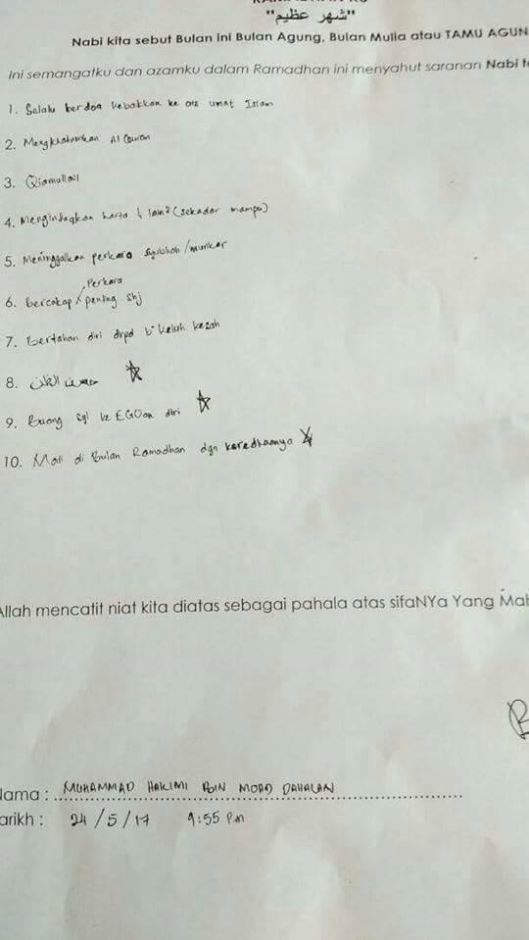 "شهر عظيم"
Nabi kita sebut Bulan ini Bulan Agung, Bulan Mulia atau TAMU AGUN
Ini semangatku dan azamku dalam Ramadhan ini menyahut saranan Nabi
1. Selalu berdoa kebaikkan ke atas umat Islam
2. Mengkhatamkan Al Quran
3. Qiamullail
4. Menginfaqkan harta & lain² (sekadar mampu)
5. Meninggalkan perkara syubhah/munkar
6. Bercakap perkara penting shj
7. Bertahan diri drpd b'keluh kesah
8. حسن الظن
9. Buang sgl ke EGOan diri
10. Mati di Bulan Ramadhan dgn keredhaannya
Allah mencatit niat kita diatas sebagai pahala atas sifaNYa Yang Mah
Nama : MUHAMMAD HAKIMI BIN MOHD DAHALAN
arikh : 24/5/17 9:55 Pm